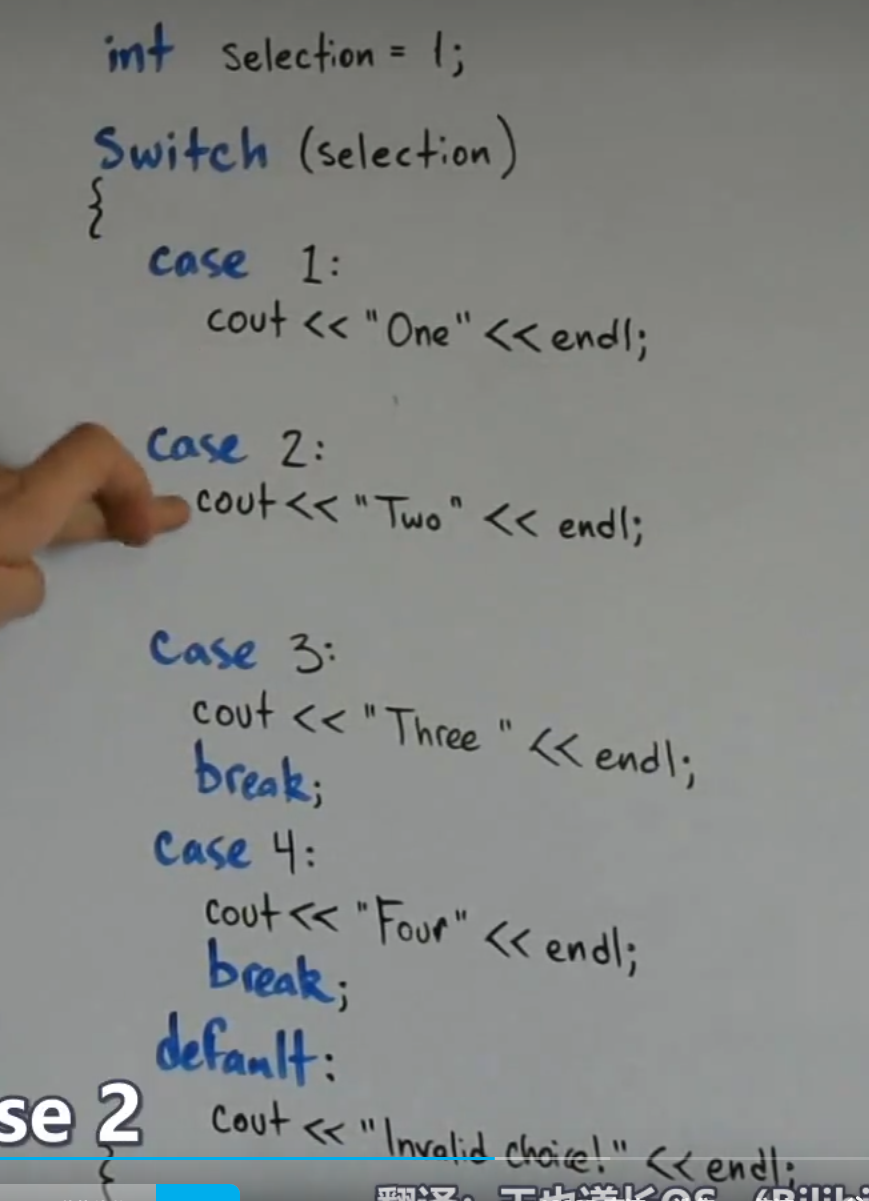 int selection = 1;
Switch (selection)
{
case 1:
cout << "One" << endl;
case 2:
cout << "Two" << endl;
case 3:
cout << "Three" << endl;
break;
case 4:
cout << "Four" << endl;
break;
default:
cout << "Invalid choice!" << endl;
se 2
}
翻译: